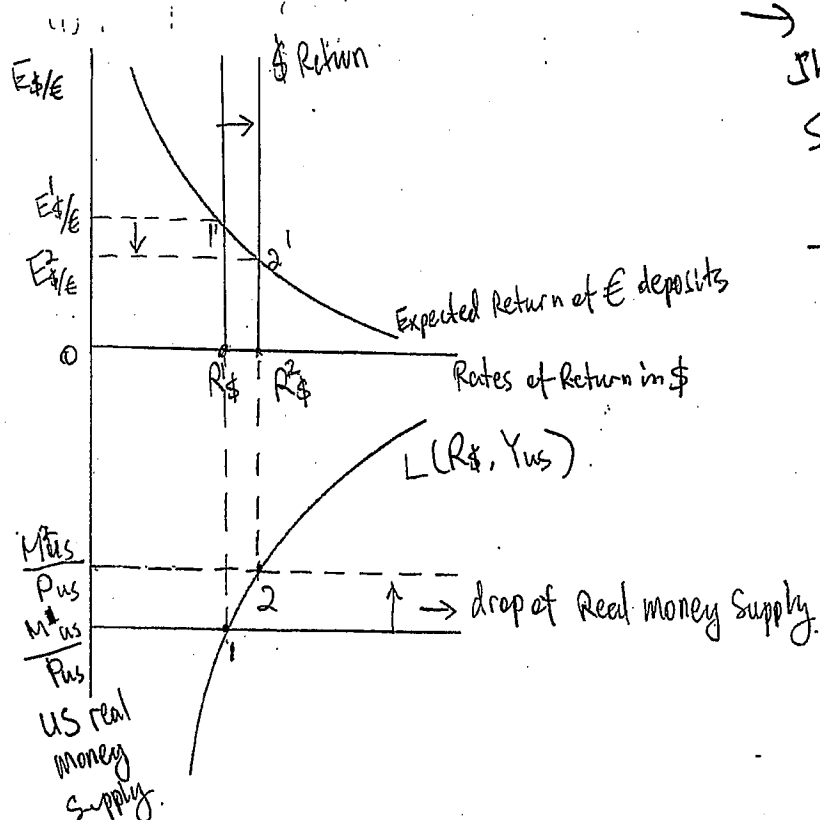 $ Return
E$/€
E¹$/€
1'
2'
E²$/€
Expected Return of € deposits
0
R¹$
R²$
Rates of Return in $
L(R$, Yus)
M²us
Pus
2
→ drop of Real money supply.
M¹us
Pus
1
US real
money
supply.